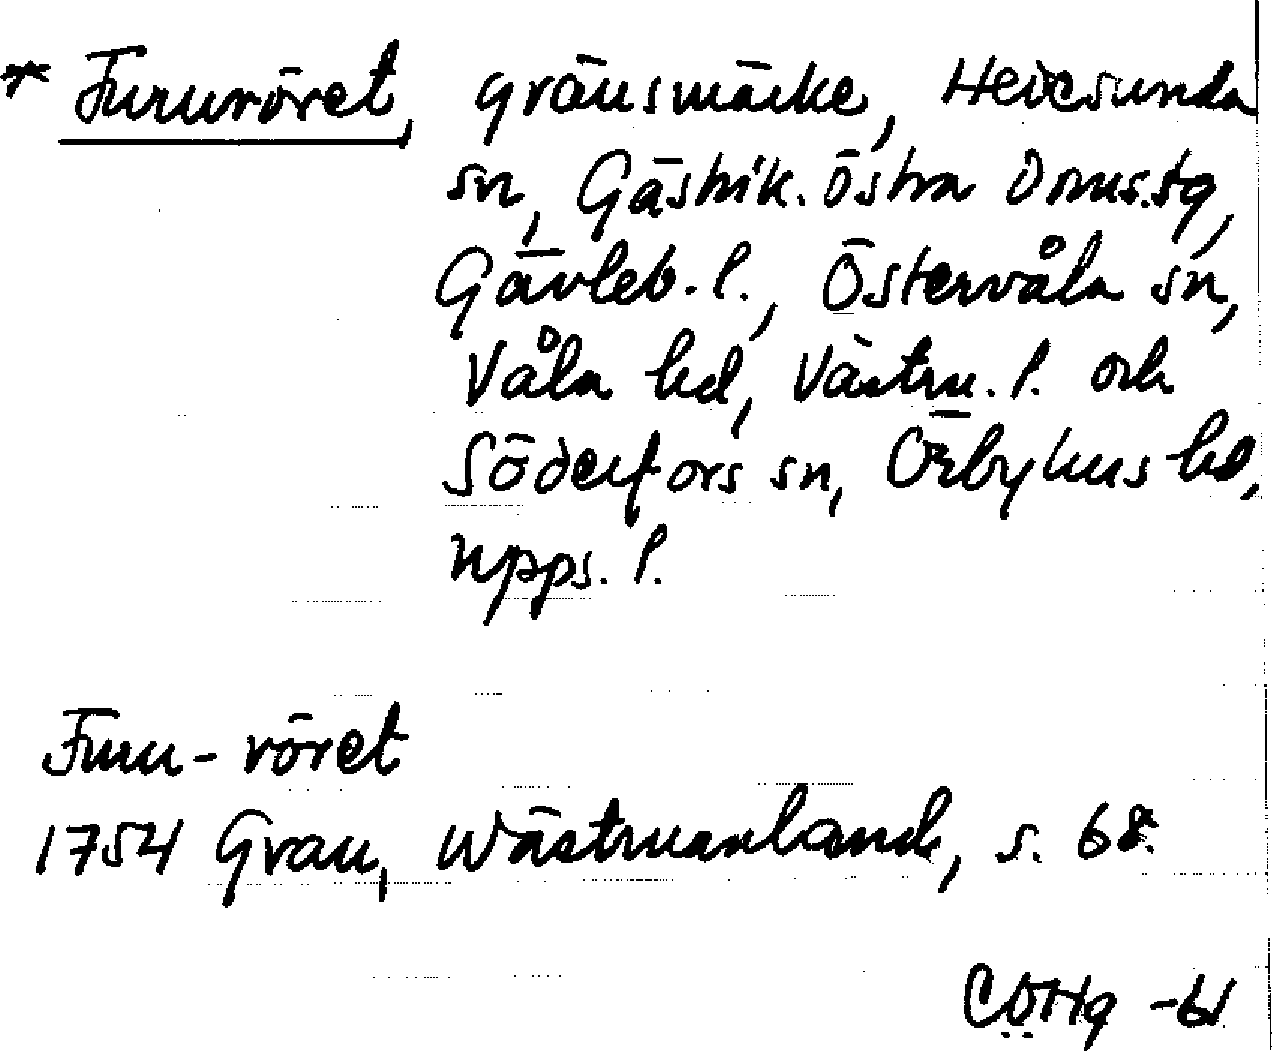 * Fururöret, gränsmärke, Hedesunda
sn, Gästrik. Östra Doms.sg,
Gävleb. l., Östervåla sn,
Våla hd, Västm. l. och
Söderfors sn, Örbyhus hd,
Upps. l.
Furu-röret
1754 Grau, Wästmanland, s. 68.
CÖHg -61